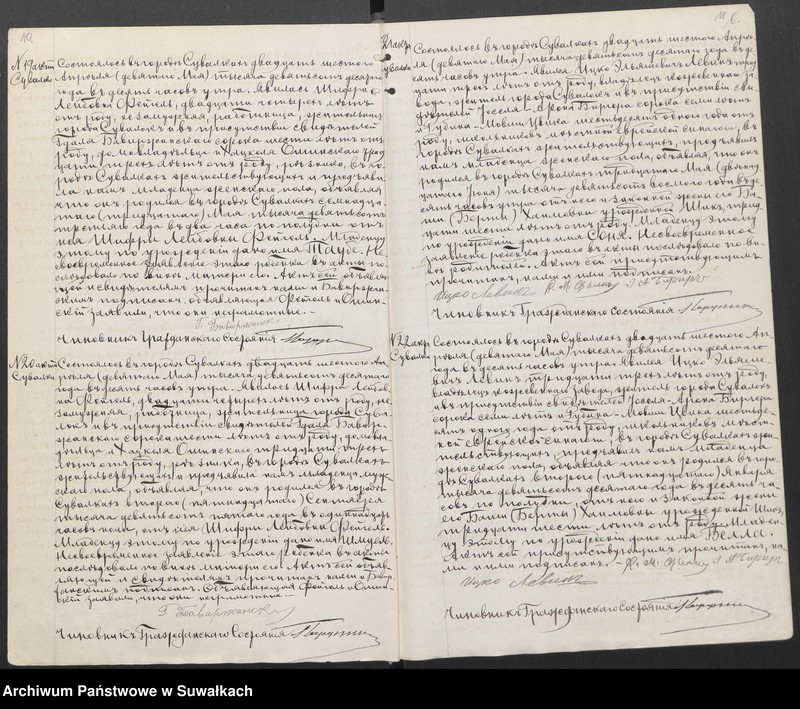 10.
N 19 актъ
Сувалки
Состоялось въ городѣ Сувалкахъ двадцать шестого
Апрѣля (девятаго Мая) тысяча девятьсотъ десятаго
года въ десять часовъ утра. Явилась Шифра
Лейбовна Фейгель, двадцати четырехъ лѣтъ
отъ роду, незамужняя, работница, жительница
города Сувалокъ и въ присутствіи свидѣтелей
сорока шести лѣтъ отъ
роду, домовладѣльца и Хацкеля
трид-
цати трехъ лѣтъ отъ роду, рѣзника, въ го-
родѣ Сувалкахъ жительствующихъ и предъяви-
ла намъ младенца женскаго пола, объявляя
что онъ родился въ городѣ Сувалкахъ семнадца-
таго (тридцатаго) Мая тысяча девятьсотъ
третьяго года въ два часа по полудни отъ
нея Шифры Лейбовны Фейгель. Младенцу
этому по урожденіи дано имя Тауба. Не-
своевременное заявленіе этаго ребенка въ акты по-
слѣдовало по винѣ матери его. Актъ сей объявля-
ющей и свидѣтелямъ прочитанъ нами и
подписанъ, объявляющая Фейгель и
заявили, что они неграмотные.
Чиновникъ Гражданскаго Состоянія
N 20 актъ
Сувалки
Состоялось въ городѣ Сувалкахъ двадцать шестого Ап-
рѣля (девятаго Мая) тысяча девятьсотъ десятаго
года въ десять часовъ утра. Явилась Шифра Лейбов-
на Фейгель, двадцати четырехъ лѣтъ отъ роду, не-
замужняя, работница, жительница города Сува-
локъ и въ присутствіи свидѣтелей
сорока шести лѣтъ отъ роду, домовла-
дѣльца и Хацкеля тридцати трехъ
лѣтъ отъ роду, рѣзника, въ городѣ Сувалкахъ
жительствующихъ и предъявила намъ младенца муж-
скаго пола, объявляя, что онъ родился въ городѣ
Сувалкахъ второго (пятнадцатаго) Сентября
тысяча девятьсотъ пятаго года въ одинадцать
часовъ ночи, отъ нея Шифры Лейбовны Фейгель.
Младенцу этому по урожденіи дано имя Шмуель.
Несвоевременное заявленіе этаго ребенка въ акты
послѣдовало по винѣ матери его. Актъ сей объяв-
ляющей и свидѣтелямъ прочитанъ нами и
подписанъ. Объявляющая Фейгель и
заявили, что они неграмотные.
Чиновникъ Гражданскаго Состоянія
11
6.
21 актъ
Сувалки
Состоялось въ городѣ Сувалкахъ двадцать шестого Апрѣ-
ля (девятаго Мая) тысяча девятьсотъ десятаго года въ де-
сять часовъ утра. Явился Ицко Эльяшевичъ Левинъ, трид-
цати трехъ лѣтъ отъ роду, владѣлецъ кожевеннаго за-
вода, житель города Сувалокъ и въ присутствіи сви-
дѣтелей Іоселя-Арона сорока семи лѣтъ
и Рувина-Мовши шестьдесятъ одного года отъ
роду, школьниковъ мѣстной еврейской синагоги, въ
городѣ Сувалкахъ жительствующихъ, предъявилъ
намъ младенца женскаго пола, объявляя, что онъ
родился въ городѣ Сувалкахъ тридцатаго Мая (двѣнад-
цатаго Іюня) тысяча девятьсотъ восьмого года въ де-
сять часовъ утра отъ него и законной жены его Ба-
ши (Берты) Хаимовны урожденной Шихъ, трид-
цати шести лѣтъ отъ роду. Младенцу этому
по урожденіи дано имя Соня. Несвоевременное
заявленіе ребенка этаго въ акты послѣдовало по ви-
нѣ родителей. Актъ сей присутствующимъ
прочитанъ, нами и ими подписанъ.
Ицко Левинъ
Чиновникъ Гражданскаго Состоянія
N 22 актъ
Сувалки
Состоялось въ городѣ Сувалкахъ двадцать шестого Ап-
рѣля (девятаго Мая) тысяча девятьсотъ десятаго
года въ десять часовъ утра. Явился Ицко Эльяше-
вичъ Левинъ тридцати трехъ лѣтъ отъ роду,
владѣлецъ кожевеннаго завода, житель города Сувалокъ
и въ присутствіи свидѣтелей Іоселя-Арона
сорока семи лѣтъ и Рувина-Мовши шестьде-
сятъ одного года отъ роду, школьниковъ мѣст-
ной еврейской синагоги, въ городѣ Сувалкахъ жи-
тельствующихъ, предъявилъ намъ младенца
женскаго пола, объявляя что онъ родился въ горо-
дѣ Сувалкахъ второго (пятнадцатаго) Января
тысяча девятьсотъ десятаго года въ десять ча-
совъ по полудни, отъ него и законной жены
его Баши (Берты) Хаимовны урожденной Шихъ,
тридцати шести лѣтъ отъ роду. Младен-
цу этому по урожденіи дано имя Белла.
Актъ сей присутствующимъ прочитанъ, на-
ми и ими подписанъ.
Ицко Левинъ
Чиновникъ Гражданскаго Состоянія
Archiwum Państwowe w Suwałkach